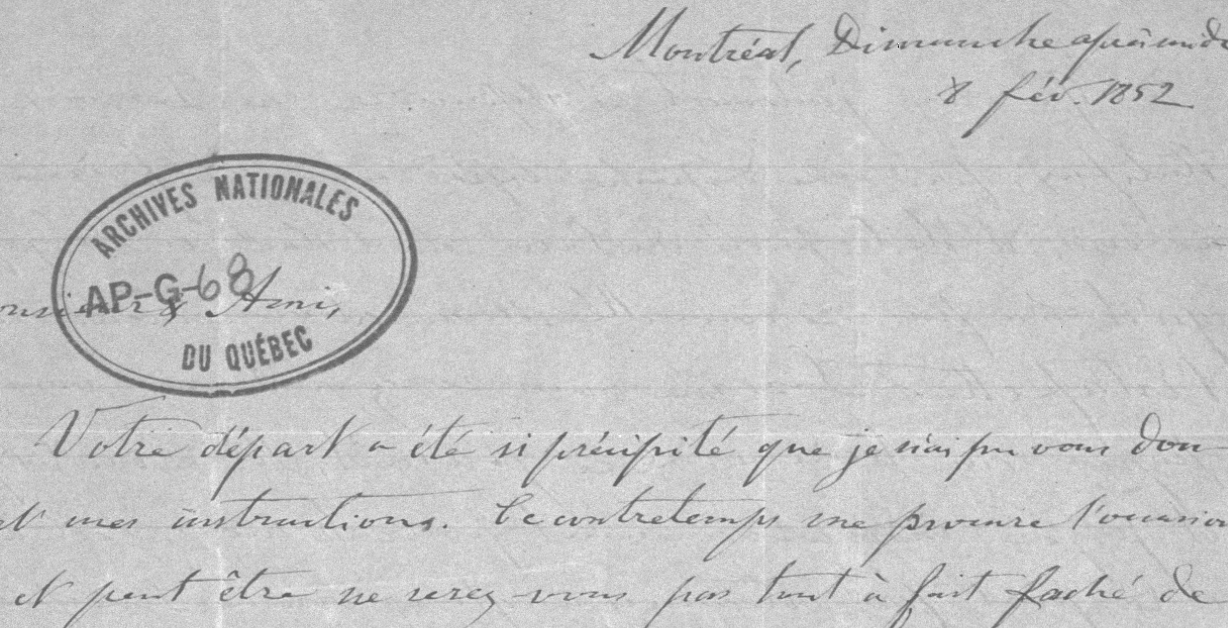 Montréal, Dimanche après midi
8 fév. 1852
ARCHIVES NATIONALES
AP-G-68
DU QUÉBEC
onsieur & Ami,
Votre départ a été si précipité que je n'ai pu vous don
et mes instructions. Ce contretemps me procure l'occasion
et peut être ne serez-vous pas tout à fait faché de